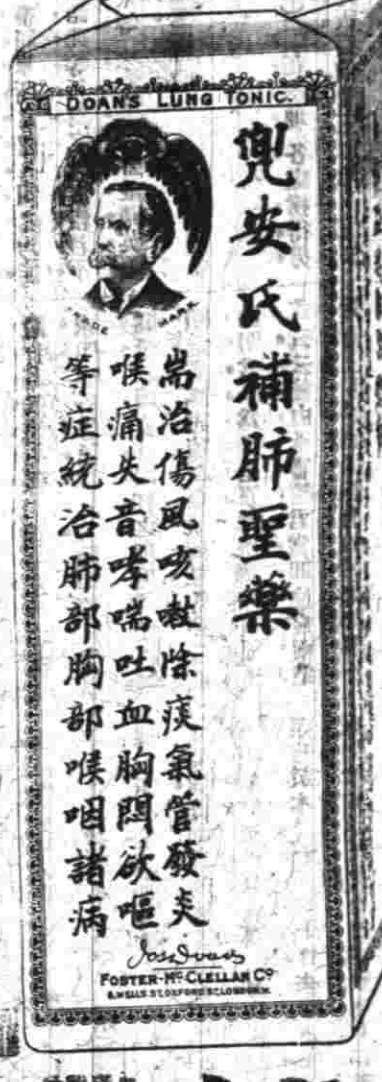 DOAN'S LUNG TONIC.
兜安氏補肺聖藥
TRADE MARK
耑治傷風咳嗽除痰氣管發炎
喉痛失音哮喘吐血胸悶欲嘔
等症統治肺部胸部喉咽諸病
FOSTER-McCLELLAN Co
8, WELLS ST. OXFORD ST. LONDON. W.